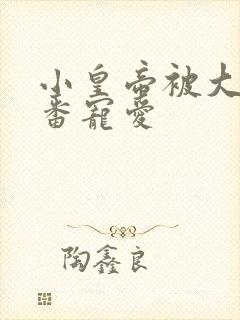 小皇帝被大
番宠爱
陶鑫良